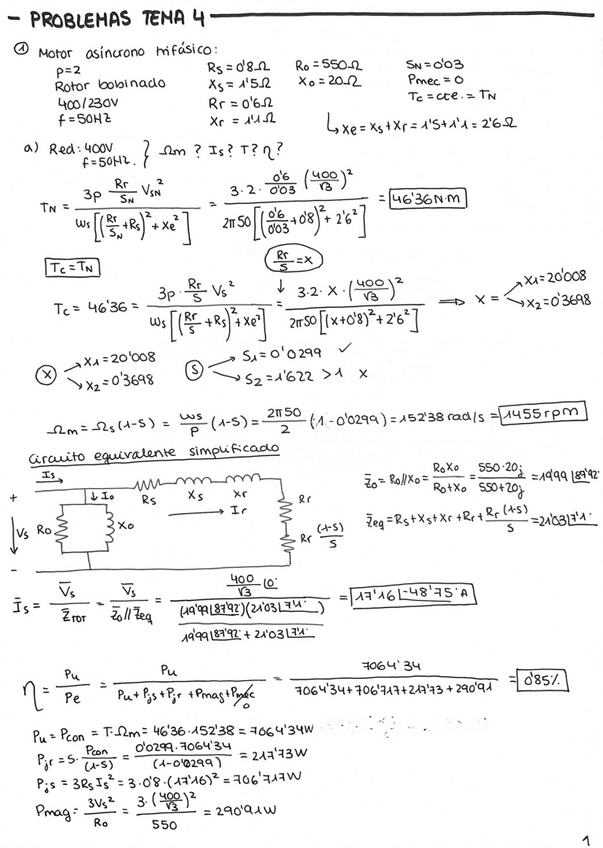 - PROBLEMAS TEMA 4
① Motor asíncrono trifásico:
p=2 Rs=0'8Ω Ro=550Ω SN=0'03
Rotor bobinado Xs=1'5Ω Xo=20Ω Pmec=0
400/230V Rr=0'6Ω Tc=cte.=TN
f=50Hz Xr=1'1Ω ↳ Xe=Xs+Xr=1'5+1'1=2'6Ω
a) Red: 400V f=50Hz. } Ωm? Is? T? η?
TN = 3p Rr/SN VSN² / ws[(Rr/SN+Rs)²+Xe²] = 3·2·0'6/0'03 (400/√3)² / 2π50[(0'6/0'03+0'8)²+2'6²] = 46'36N·m
Tc=TN Rr/S=x
Tc = 46'36 = 3p·Rr/S Vs² / ws[(Rr/S+Rs)²+Xe²] = 3·2·X·(400/√3)² / 2π50[(x+0'8)²+2'6²] ⟹ X= X1=20'008 X2=0'3698
X X1=20'008 X2=0'3698 S S1=0'0299 ✓ S2=1'622 >1 x
Ωm = Ωs(1-S) = ws/p (1-S) = 2π50/2 (1-0'0299) = 152'38 rad/s = 1455rpm
Circuito equivalente simplificado
Is + Io Rs Xs Xr Ir Vs Ro Xo Rr Rr (1-S)/S -
Z̄o = Ro//Xo = RoXo/Ro+Xo = 550·20j/550+20j = 19'99 |87'92·
Z̄eq=Rs+Xs+Xr+Rr+Rr(1-S)/S=21'03|7'1·
Īs = V̄s/Z̄TOT = V̄s/Z̄o//Z̄eq = 400/√3 |0· / (19'99|87'92)(21'03|7'1·)/19'99|87'92+21'03|7'1· = 17'16|-48'75·A
η = Pu/Pe = Pu/Pu+Pjs+Pjr+Pmag+Pmec 0 = 7064'34/7064'34+706'717+217'73+290'91 = 0'85%
Pu = Pcon = T·Ωm = 46'36·152'38 = 7064'34W
Pjr = S·Pcon/(1-S) = 0'0299·7064'34/(1-0'0299) = 217'73W
Pjs = 3RsIs² = 3·0'8·(17'16)² = 706'717W
Pmag = 3Vs²/Ro = 3·(400/√3)²/550 = 290'91W
1